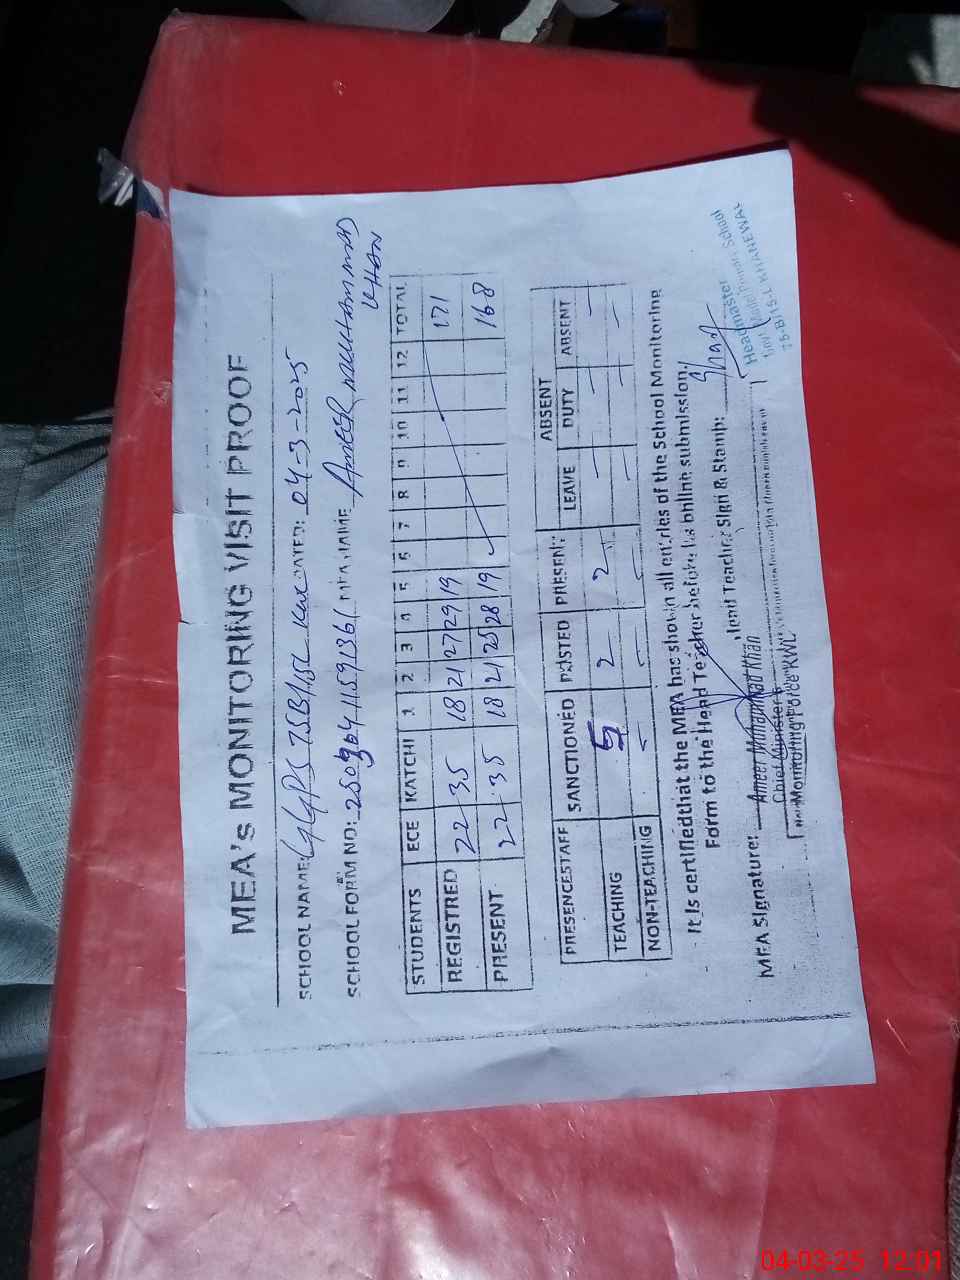 MEA's MONITORING VISIT PROOF
SCHOOL NAME: GGPS 75B/15L DATED: 04-3-2025
SCHOOL FORM NO: MEA NAME AMEER MUHAMMAD KHAN
STUDENTS ECE KATCHI 1 2 3 4 5 6 7 8 9 10 11 12 TOTAL
REGISTRED 22 35 18 21 27 29 19 171
PRESENT 22 35 18 21 25 28 19 168
ABSENT
PRESENCESTAFF SANCTIONED POSTED PRESENT LEAVE DUTY ABSENT
TEACHING 5 2 2 - - -
NON-TEACHING - - - - - -
It is certifiedthat the MEA has shown all entries of the School Monitoring
Form to the Head Teacher before his online submission.
MEA Signature: Head Teacher Sign & Stamp:
Ameer Muhammad Khan
Chief Minister's
Monitoring Force KWL
Headmaster
Govt. Model Primary School
75-B/15-L KHANEWAL
04-03-25 12:01